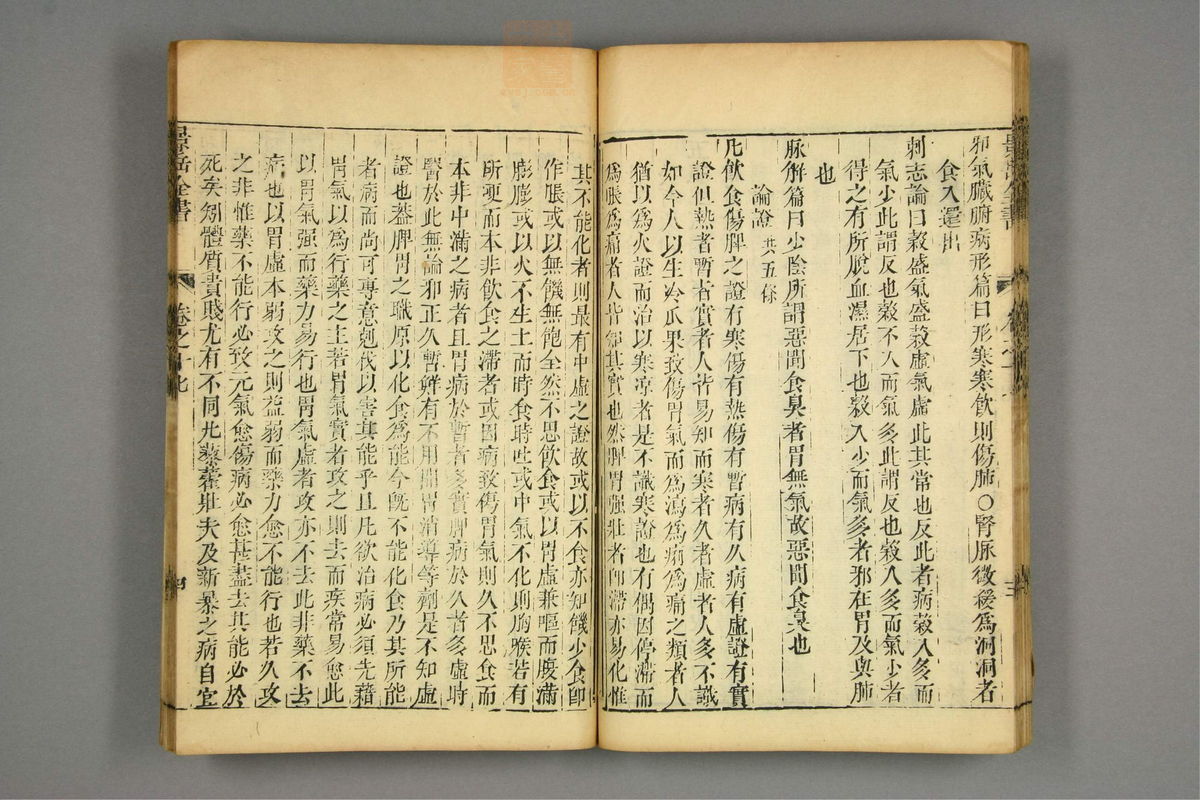 邪氣臟腑病形篇曰形寒寒飲則傷肺○腎脉微緩爲洞洞者
食入還出
刺志論曰穀盛氣盛穀虛氣虛此其常也反此者病穀入多而
氣少此謂反也穀不入而氣多此謂反也穀入多而氣少者
得之有所脫血濕居下也穀入少而氣多者邪在胃及與肺
也
脉解篇曰少陰所謂惡聞食臭者胃無氣故惡聞食臭也
論證 共五條
凡飲食傷脾之證有寒傷有熱傷有暫病有久病有虛證有實
證但熱者暫者實者人皆易知而寒者久者虛者人多不識
如今人以生冷瓜果致傷胃氣而爲瀉爲痢爲痛之類者人
猶以爲火證而治以寒凉者是不識寒證也有偶因停滯而
爲脹爲痛者人皆知其實也然脾胃强壯者卽滯亦易化惟
其不能化者則最有中虛之證故或以不食亦知饑少食卽
作脹或以無饑無飽全然不思飲食或以胃虛兼嘔而腹滿
膨膨或以火不生土而時食時吐或中氣不化則胸喉若有
所哽而本非飲食之滯者或因病致傷胃氣則久不思食而
本非中滿之病者且胃病於暫者多實脾病於久者多虛時
醫於此無論邪正久暫鮮有不用開胃消導等劑是不知虛
證也葢脾胃之職原以化食爲能今旣不能化食乃其所能
者病而尚可專意剋伐以害其能乎且凡欲治病必須先藉
胃氣以爲行藥之主若胃氣實者攻之則去而疾常易愈此
以胃氣强而藥力易行也胃氣虛者攻亦不去此非藥不去
病也以胃虛本弱攻之則益弱而藥力愈不能行也若久攻
之非惟藥不能行必致元氣愈傷病必愈甚盡去其能必於
死矣矧體質貴賤尤有不同凡藜藿壯夫及新暴之病自宜
景岳全書
卷之十七